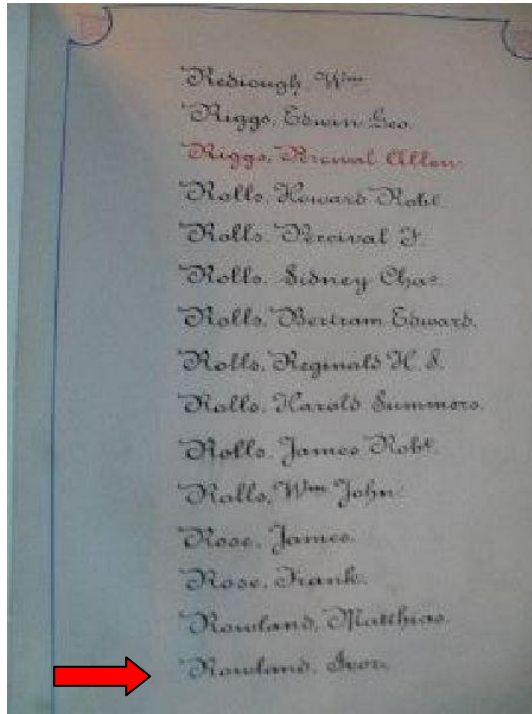 Rediough, Wm
Riggs, Edwin Geo.
Riggs, Percival Allen.
Rolls, Howard Robt.
Rolls, Percival F.
Rolls, Sidney Chas.
Rolls, Bertram Edward.
Rolls, Reginald H. S.
Rolls, Harold Summers.
Rolls, James Robt.
Rolls, Wm John.
Rose, James.
Rose, Frank.
Rowland, Matthias.
Rowland, Ivor.